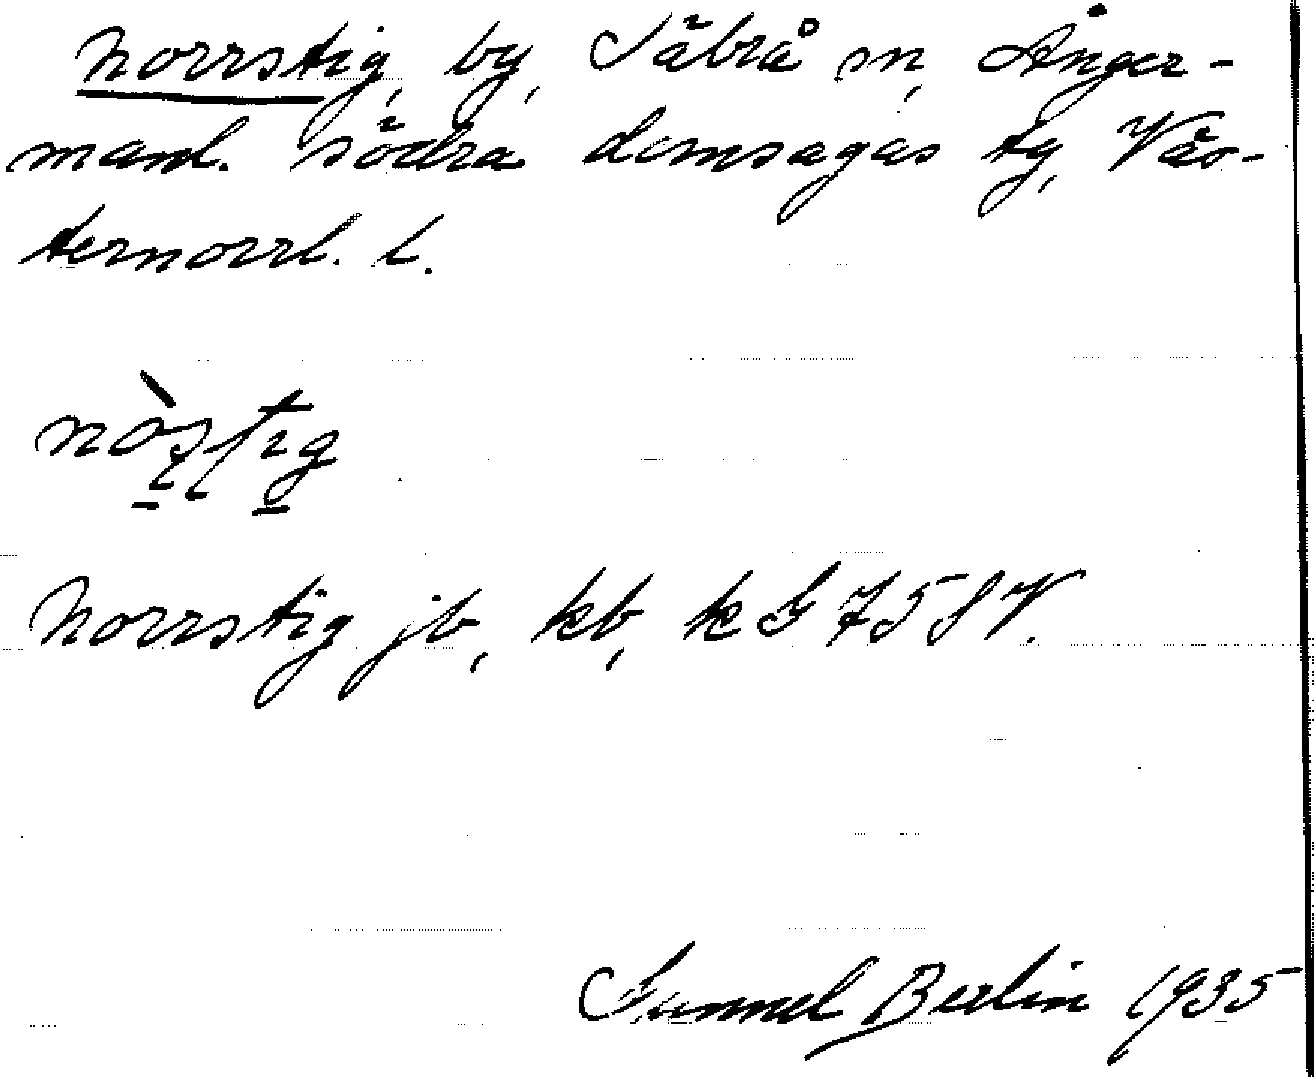 Norrstig, by, Säbrå sn, Ånger-
manl. södra domsagas tg, Väs-
ternorrl. l.
Norrstig jb, kb, k G 758 V.
Gunnel Berlin 1935